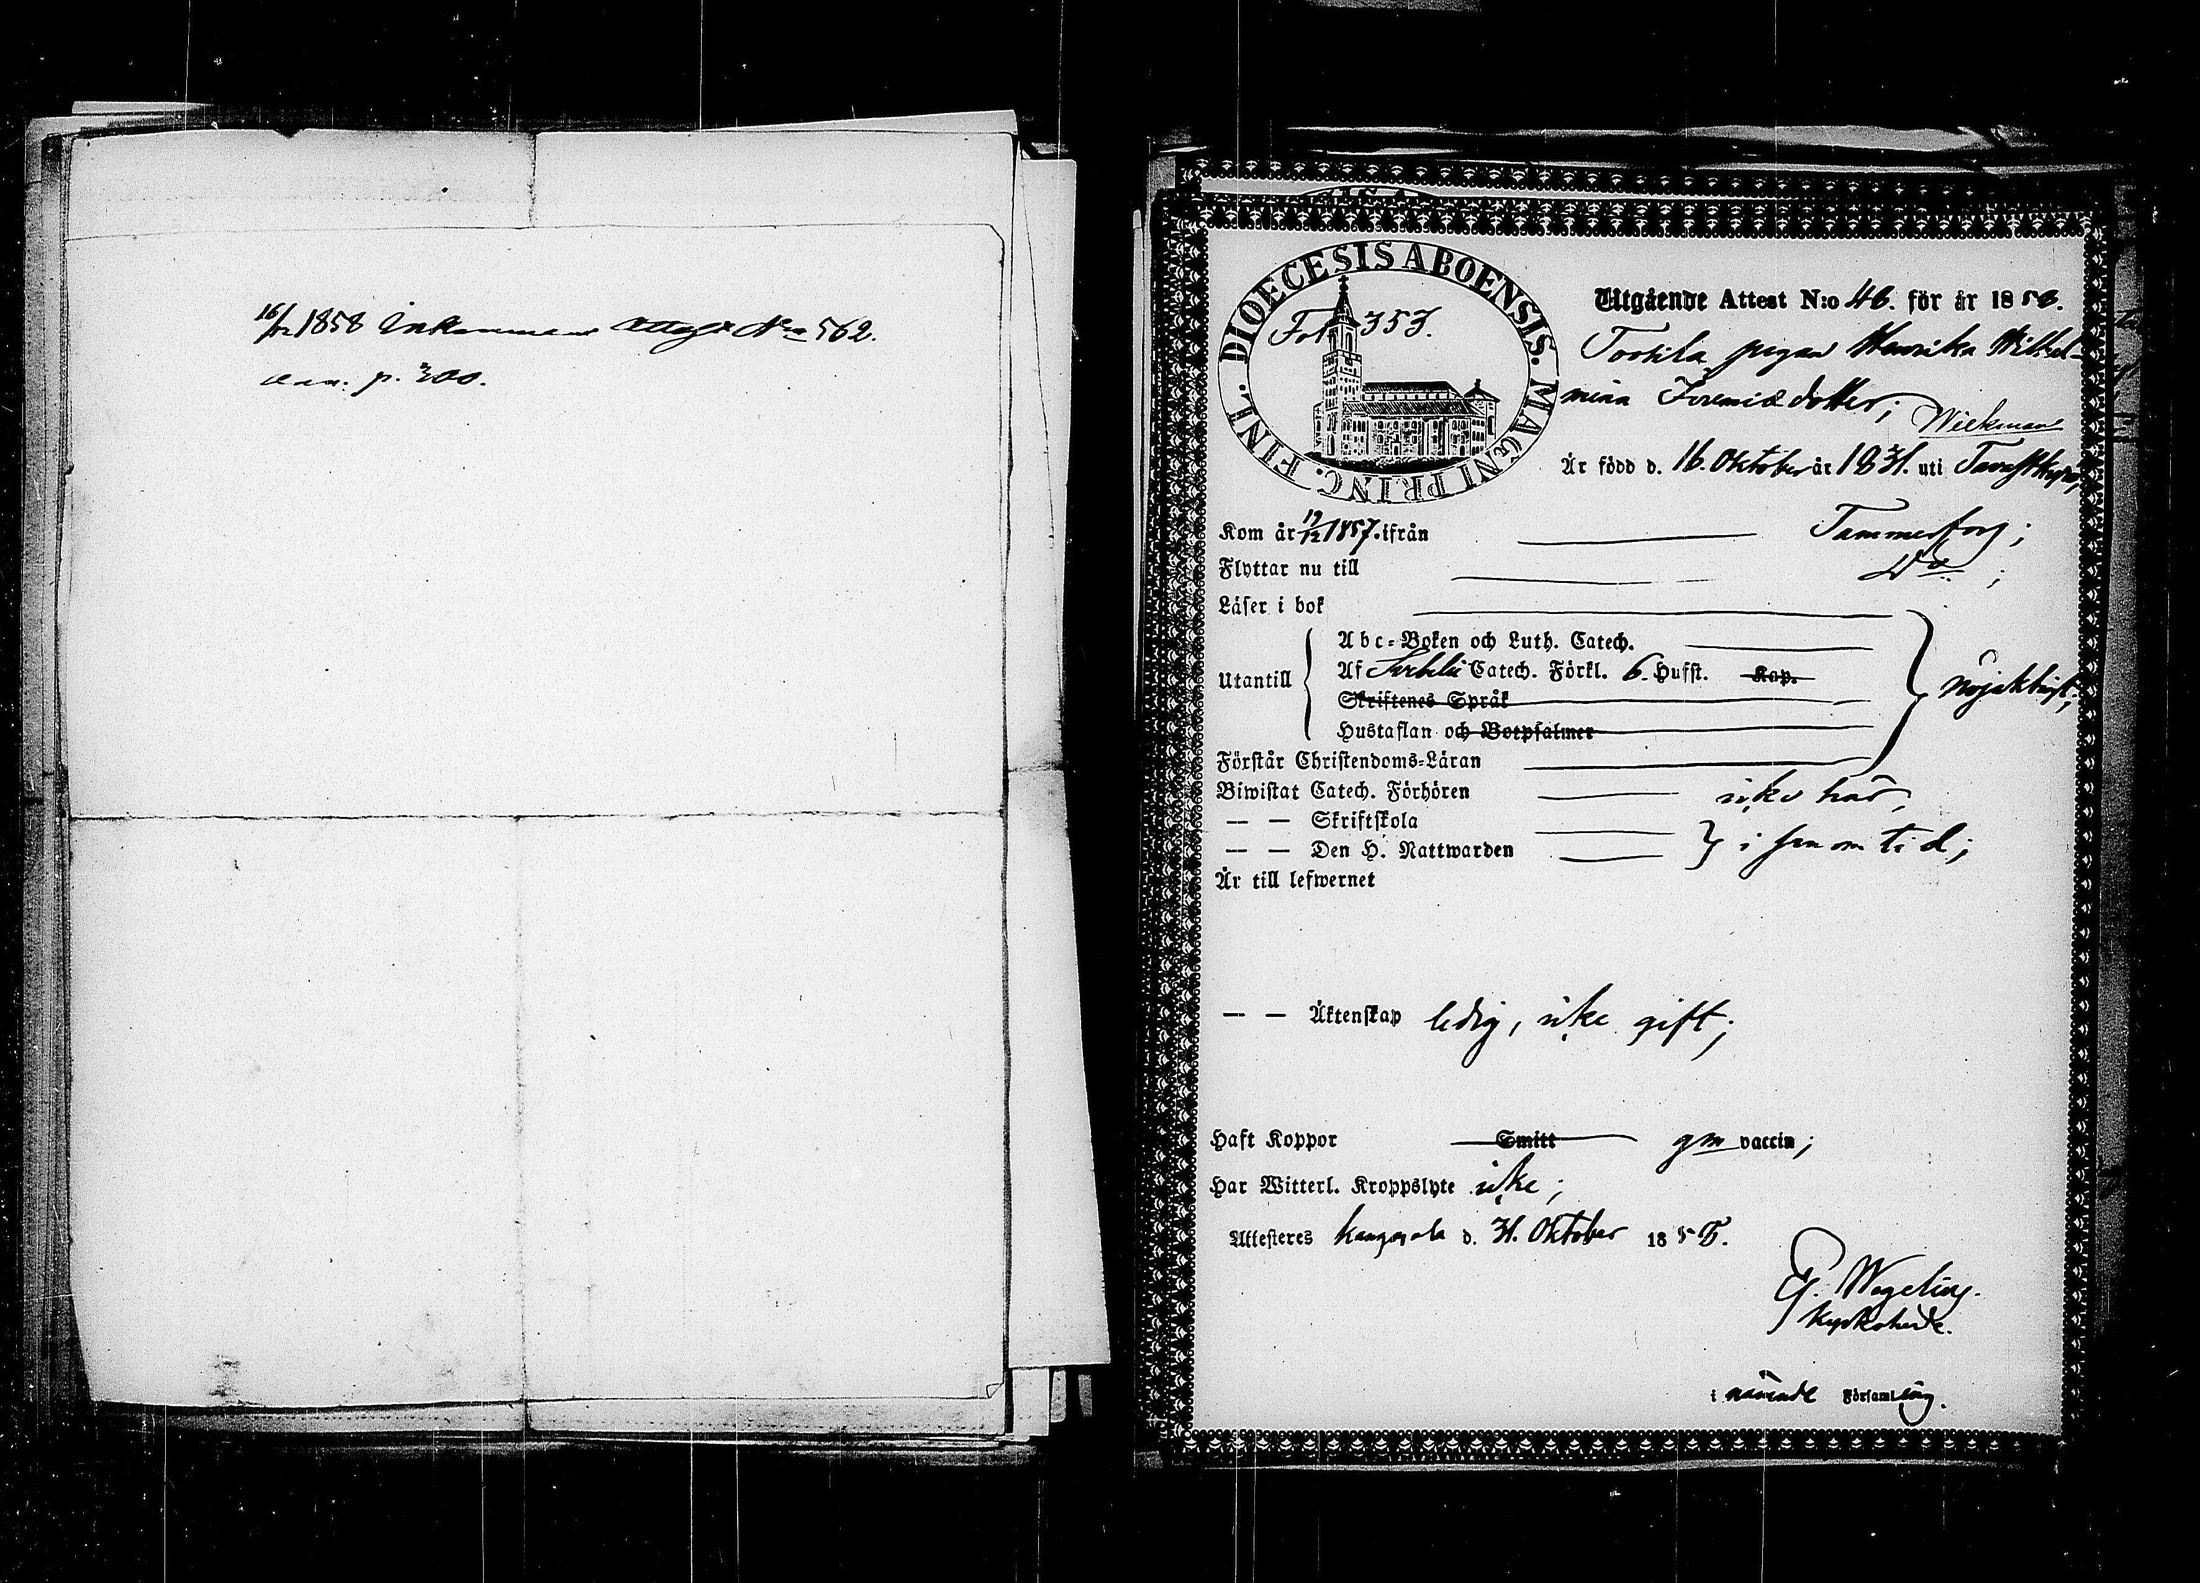 16/12 1858 Inkommens attest No 562.
p. 300.
DIOECESIS ABOENSIS. MAGNI PRINC. FINL.
Fol. 353.
Utgående Attest N:o 46. för år 1858.
Tookila pigan Henrika Wilhel-
mina Jeremiæ dotter; Wickman
Är född d. 16. Oktober år 1831. uti
Kom år 19/12 1857. ifrån Tammerfors;
Flyttar nu till Do;
Läser i bok
Utantill
Abc-Boken och Luth. Catech.
Af Svebilii Catech. Förkl. 6. Hufst. Kap.
Skriftenes Språk
Hustaflan och Botpsalmer
nöjaktigt;
Förstår Christendoms-Läran
Biwistat Catech. Förhören icke här,
— — Skriftskola
— — Den H. Nattwarden i sin om tid;
Är till lefwernet
— — Äktenskap ledig, icke gift;
Haft Koppor Smitt gm vaccin;
Har Witterl. Kroppslyte icke;
Attesteres Kangasala d. 31. Oktober 1858.
G. Wegelius.
Kyrkoherde.
i nämnde Församling.